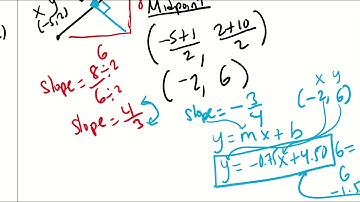 x y
(-5,2)
Midpoint
(-5+1/2, 2+10/2)
(-2, 6)
6
slope = 8÷2/6÷2
slope = 4/3
slope = -3/4
x y
(-2, 6)
y = mx + b
y = -0.75x + 4.50
6 =
6
-1.5